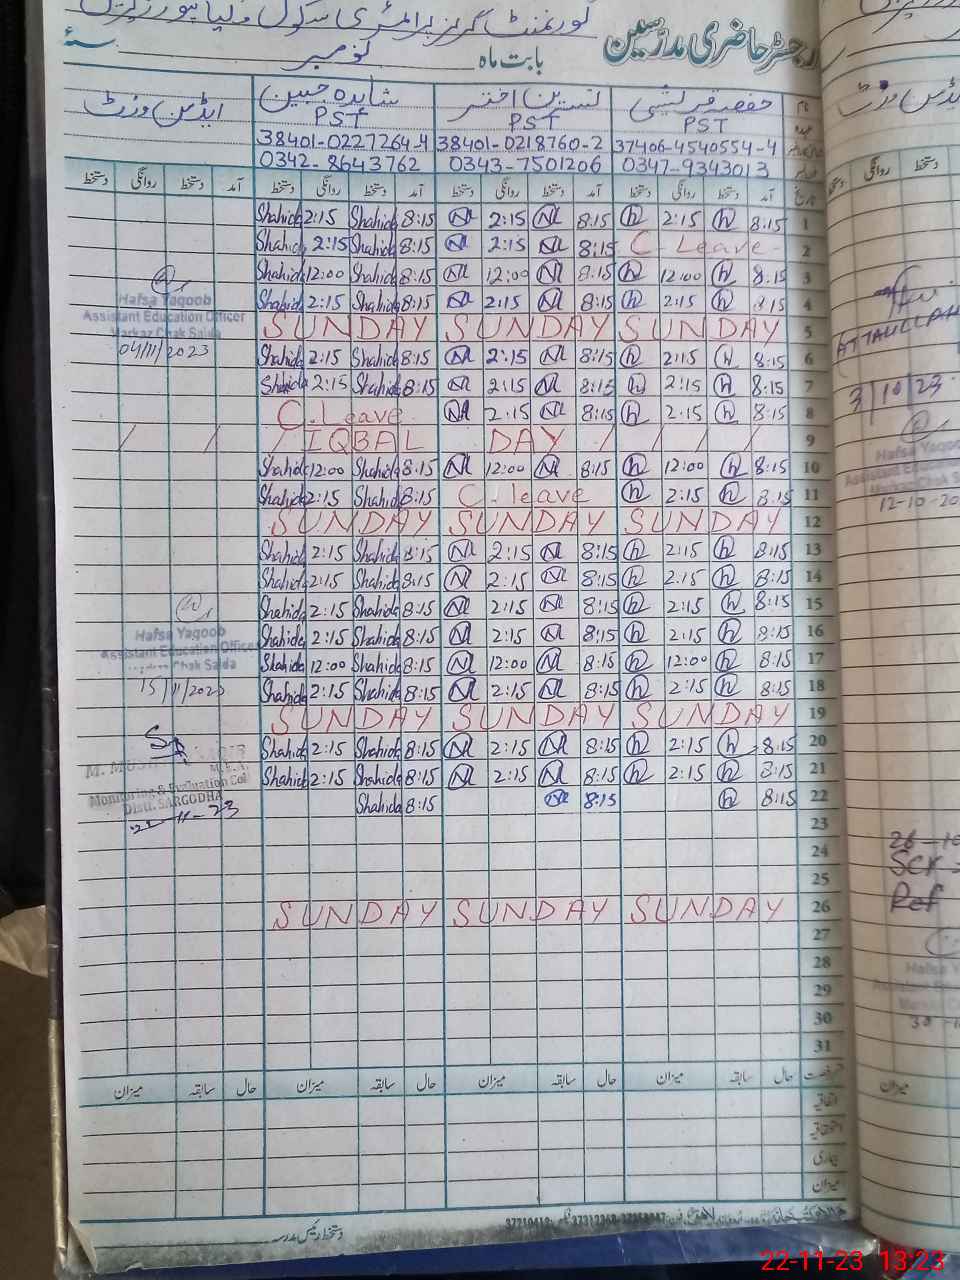 گورنمنٹ گرلز پرائمری سکول
رجسٹر حاضری مدرسین
بابت ماہ نومبر سنۂ
نام حفصہ قریشی نسرین اختر شاہدہ جبین ایڈمن وزٹ
عہدہ PST PST PST
37406-4540554-4 38401-0218760-2 38401-0227264-4
0347-9343013 0343-7501206 0342-8643762
تاریخ آمد دستخط روانگی دستخط آمد دستخط روانگی دستخط آمد دستخط روانگی دستخط آمد دستخط روانگی دستخط
Shahida 2:15 Shahida 8:15 N 2:15 N 8:15 h 2:15 h 8:15 1
Shahida 2:15 Shahida 8:15 N 2:15 N 8:15 C. Leave 2
Shahida 12:00 Shahida 8:15 N 12:00 N 8:15 h 12:00 h 8:15 3
Shahida 2:15 Shahida 8:15 N 2:15 N 8:15 h 2:15 h 8:15 4
SUNDAY SUNDAY SUNDAY 5
Shahida 2:15 Shahida 8:15 N 2:15 N 8:15 h 2:15 h 8:15 6
Shahida 2:15 Shahida 8:15 N 2:15 N 8:15 h 2:15 h 8:15 7
C. Leave N 2:15 N 8:15 h 2:15 h 8:15 8
/ / / IQBAL DAY / / / / 9
Shahida 12:00 Shahida 8:15 N 12:00 N 8:15 h 12:00 h 8:15 10
Shahida 2:15 Shahida 8:15 C. leave h 2:15 h 8:15 11
SUNDAY SUNDAY SUNDAY 12
Shahida 2:15 Shahida 8:15 N 2:15 N 8:15 h 2:15 h 8:15 13
Shahida 2:15 Shahida 8:15 N 2:15 N 8:15 h 2:15 h 8:15 14
Shahida 2:15 Shahida 8:15 N 2:15 N 8:15 h 2:15 h 8:15 15
Shahida 2:15 Shahida 8:15 N 2:15 N 8:15 h 2:15 h 8:15 16
Shahida 12:00 Shahida 8:15 N 12:00 N 8:15 h 12:00 h 8:15 17
Shahida 2:15 Shahida 8:15 N 2:15 N 8:15 h 2:15 h 8:15 18
SUNDAY SUNDAY SUNDAY 19
Shahida 2:15 Shahida 8:15 N 2:15 N 8:15 h 2:15 h 8:15 20
Shahida 2:15 Shahida 8:15 N 2:15 N 8:15 h 2:15 h 8:15 21
Shahida 8:15 N 8:15 h 8:15 22
23
24
25
SUNDAY SUNDAY SUNDAY 26
27
28
29
30
31
رخصت حال سابقہ میزان حال سابقہ میزان حال سابقہ میزان حال سابقہ میزان
اتفاقیہ
استحقاقیہ
بیماری
میزان
دستخط رئیس مدرسہ
Hafsa Yaqoob
Assistant Education Officer
Markaz Chak Saida
04/11/2023
Hafsa Yaqoob
Assistant Education Officer
Chak Saida
15/11/2023
M.E.A.
Monitoring & Evaluation Cell
Distt. SARGODHA
21-11-23
ATTAULLAH
3/10/23
Hafsa Yaqoob
Assistant Education
Markaz Chak
12-10-20
26-10
Ref
Hafsa
Assistant
30
22-11-23 13:23